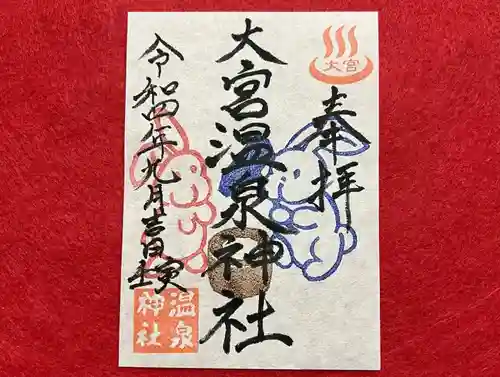 大宮
奉拝
大宮温泉神社
令和四年九月吉日
温泉
神社